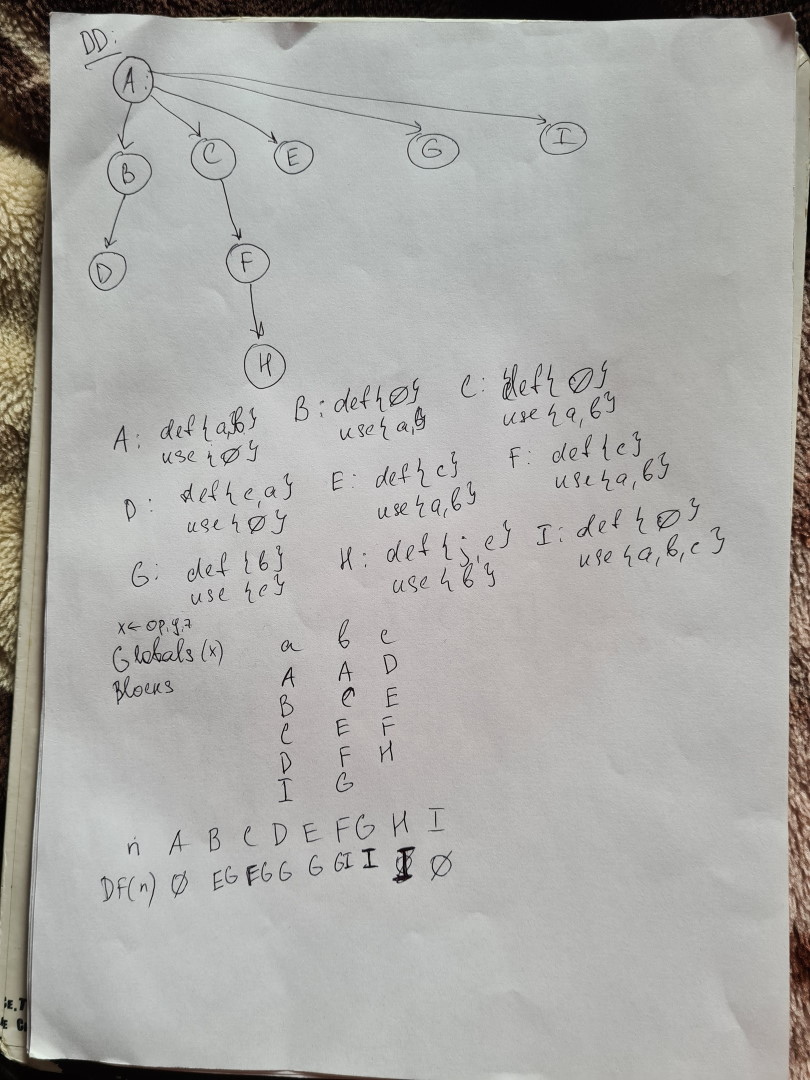 DD:
A
B C E G I
D F
H
A: def{a,b} B: def{∅} C: def{∅}
use{∅} use{a,b} use{a,b}
D: def{c,a} E: def{c} F: def{c}
use{∅} use{a,b} use{a,b}
G: def{b} H: def{j,c} I: def{∅}
use{c} use{b} use{a,b,c}
x←op,y,z
Globals(x) a b c
Blocks A A D
B C E
C E F
D F H
I G
n A B C D E F G H I
Df(n) ∅ EG EG G G GI I I ∅